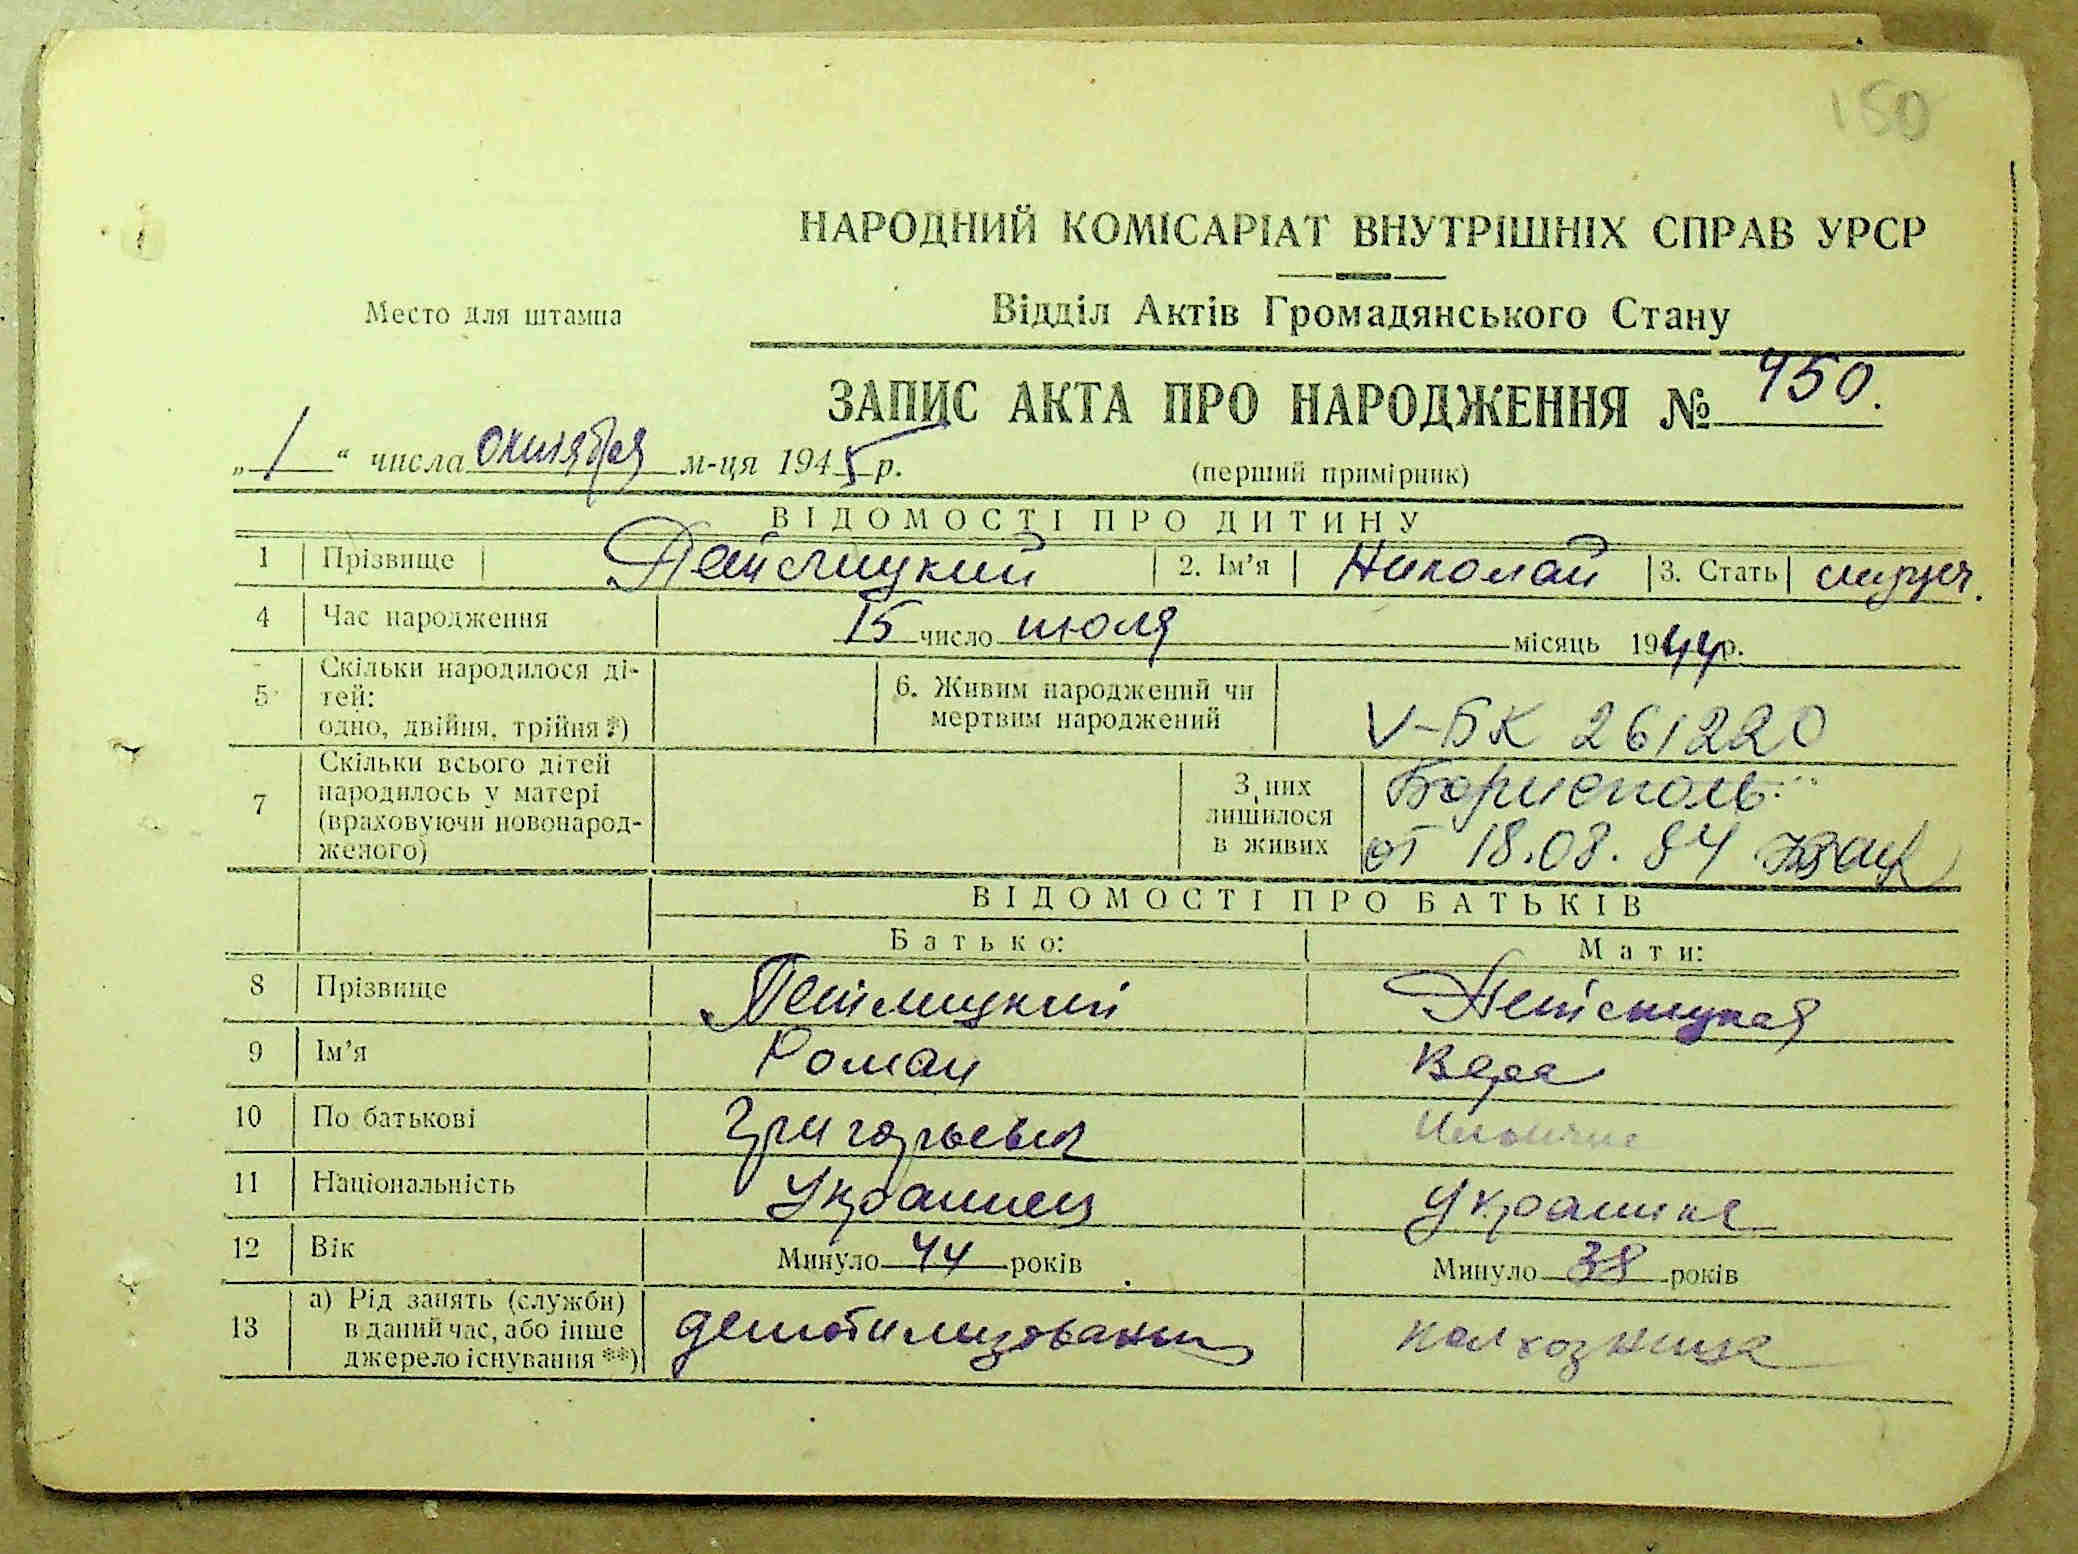 150
НАРОДНИЙ КОМІСАРІАТ ВНУТРІШНІХ СПРАВ УРСР
Место для штампа
Відділ Актів Громадянського Стану
ЗАПИС АКТА ПРО НАРОДЖЕННЯ № 450.
„ 1 “ числа октября м-ця 1945 р.
(перший примірник)
ВІДОМОСТІ ПРО ДИТИНУ
1 Прізвище 2. Ім’я Николай 3. Стать мужск.
4 Час народження 15 число июля місяць 1944 р.
5 Скільки народилося ді-
тей:
одно, двійня, трійня *)
6. Живим народжений чи
мертвим народжений
V-БК 261220
7 Скільки всього дітей
народилось у матері
(враховуючи новонарод-
женого)
З них
лишилося
в живих
Борисполь
от 18.08.84
ВІДОМОСТІ ПРО БАТЬКІВ
Батько: Мати:
8 Прізвище
9 Ім’я Роман Вера
10 По батькові Григорьевич Ильинична
11 Національність Украинец Украинка
12 Вік Минуло 44 років Минуло 38 років
13 а) Рід занять (служби)
в даний час, або інше
джерело існування **)
демобилизованный колхозница